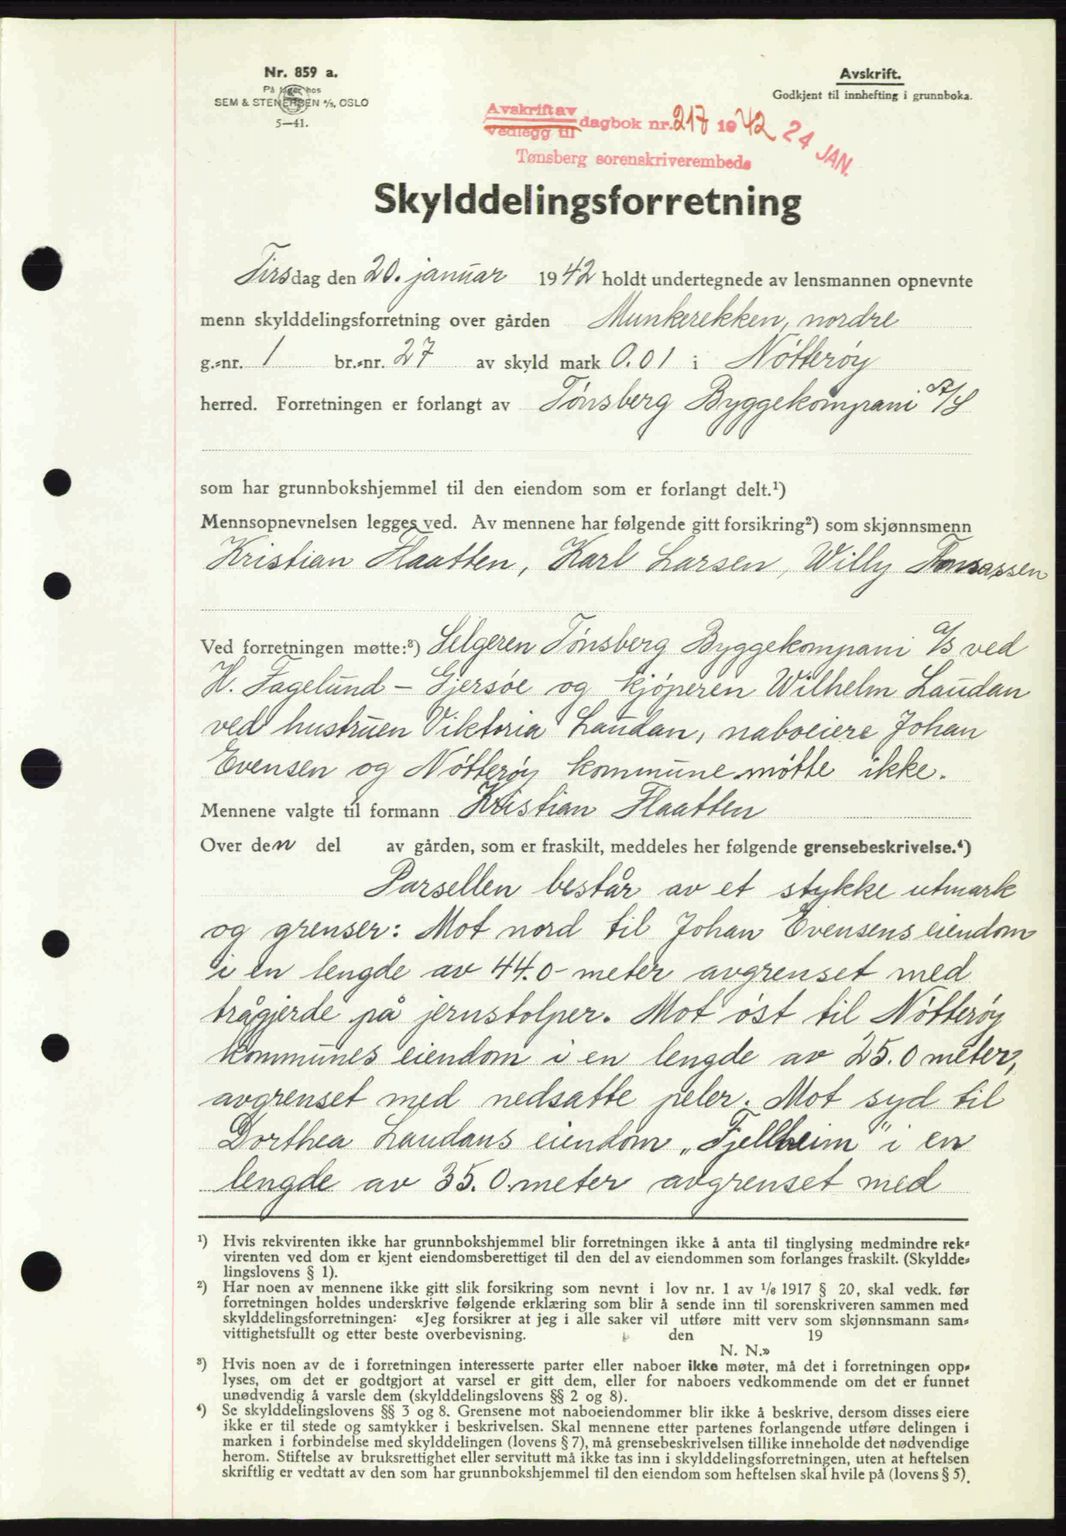 Nr. 859 a.
På lager hos
SEM & STENERSEN A/S, OSLO
5—41.
Avskrift.
Godkjent til innhefting i grunnboka.
Avskrift av
vedlegg til
dagbok nr. 217 1942 24 JAN.
Tønsberg sorenskriverembede
Skylddelingsforretning
Tirsdag den 20. januar 1942 holdt undertegnede av lensmannen opnevnte
menn skylddelingsforretning over gården Munkerekken, nordre
g.-nr. 1 br.-nr. 27 av skyld mark 0.01 i Nötterøy
herred. Forretningen er forlangt av Tónsberg Byggekompani A/S
som har grunnbokshjemmel til den eiendom som er forlangt delt.¹)
Mennsopnevnelsen legges ved. Av mennene har følgende gitt forsikring²) som skjønnsmenn
Kristian Flaatten, Karl Larsen, Willy
Ved forretningen møtte:³) Selgeren Tónsberg Byggekompani a/s ved
H. Fagelund - Gjersóe og kjóperen Wilhelm Laudan
ved hustruen Viktoria Laudan, naboeiere Johan
Evensen og Nótterøy kommune mótte ikke.
Mennene valgte til formann Kristian Flaatten
Over den del av gården, som er fraskilt, meddeles her følgende grensebeskrivelse.⁴)
Parsellen består av et stykke utmark
og grenser: Mot nord til Johan Evensens eiendom
i en lengde av 44.0- meter avgrenset med
trågjerde på jernstolper. Mot óst til Nótterøy
kommunes eiendom i en lengde av 25.0 meter,
avgrenset med nedsatte peler. Mot syd til
Dorthea Laudans eiendom „Fjellheim" i en
lengde av 35.0. meter avgrenset med
¹) Hvis rekvirenten ikke har grunnbokshjemmel blir forretningen ikke å anta til tinglysing medmindre rek-
virenten ved dom er kjent eiendomsberettiget til den del av eiendommen som forlanges fraskilt. (Skyldde-
lingslovens § 1).
²) Har noen av mennene ikke gitt slik forsikring som nevnt i lov nr. 1 av 1/6 1917 § 20, skal vedk. før
forretningen holdes underskrive følgende erklæring som blir å sende inn til sorenskriveren sammen med
skylddelingsforretningen: «Jeg forsikrer at jeg i alle saker vil utføre mitt verv som skjønnsmann sam-
vittighetsfullt og etter beste overbevisning. den 19
N. N.»
³) Hvis noen av de i forretningen interesserte parter eller naboer ikke møter, må det i forretningen opp-
lyses, om det er godtgjort at varsel er gitt dem, eller for naboers vedkommende om det er funnet
unødvendig å varsle dem (skylddelingslovens §§ 2 og 8).
⁴) Se skylddelingslovens §§ 3 og 8. Grensene mot naboeiendommer blir ikke å beskrive, dersom disses eiere
ikke er til stede og samtykker i beskrivelsen. Skal mennene etter partenes forlangende utføre delingen i
marken i forbindelse med skylddelingen (lovens § 7), må grensebeskrivelsen tillike inneholde det nødvendige
herom. Stiftelse av bruksrettighet eller servitutt må ikke tas inn i skylddelingsforretningen, uten at heftelsen
skriftlig er vedtatt av den som har grunnbokshjemmel til den eiendom som heftelsen skal hvile på (lovens § 5).